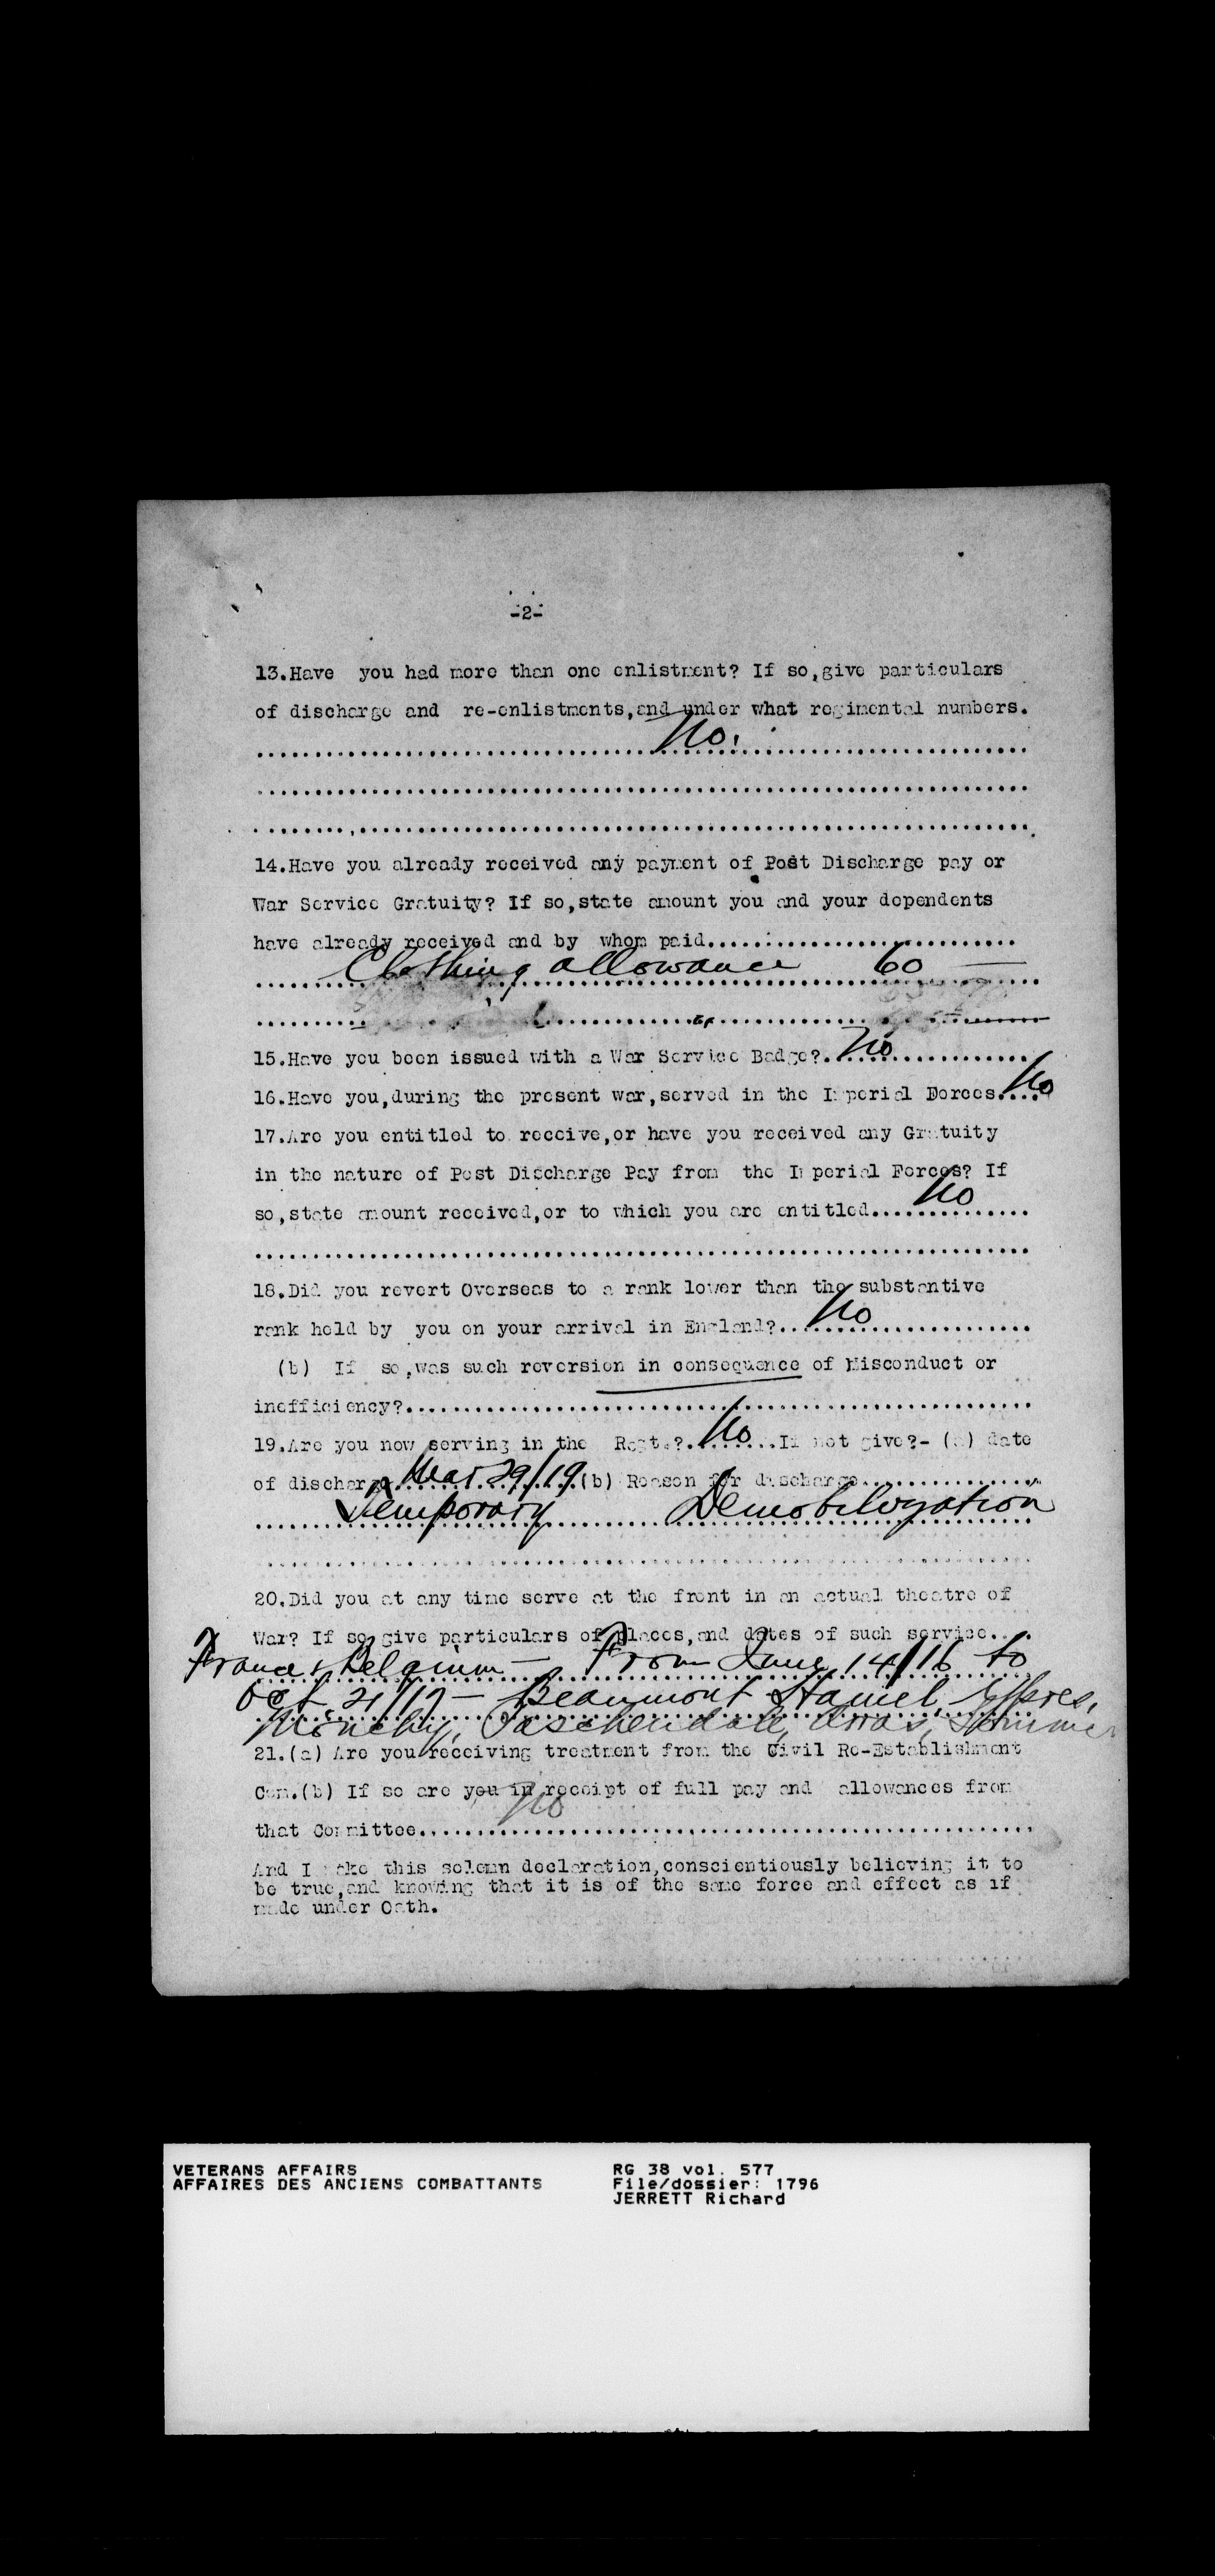 -2-
13.Have you had more than one enlistment? If so,give particulars
of discharge and re-enlistments,and under what regimental numbers.
No.
14.Have you already received any payment of Post Discharge pay or
War Service Gratuity? If so,state amount you and your dependents
have already received and by whom paid..............................
Clothing allowance 60 —
15.Have you been issued with a War Service Badge?. No
16.Have you,during the present war,served in the Imperial Forces.... No
17.Are you entitled to receive,or have you received any Gratuity
in the nature of Post Discharge Pay from the Imperial Forces? If
so,state amount received,or to which you are entitled..... No
18.Did you revert Overseas to a rank lower than the substantive
rank held by you on your arrival in England?.... No
(b) If so,was such reversion in consequence of Misconduct or
inefficiency?..................................................
19.Are you now serving in the Regt.?. No ...If not give?- (a) date
of discharge Mar 29/19 (b) Reason for discharge................
Temporary Demobilization
20.Did you at any time serve at the front in an actual theatre of
War? If so give particulars of places,and dates of such service....
France & Belgium — From June 14/16 to
Oct 21/17 — Beaumont Hamel, Ypres,
Monchy, Paschendale, Arras, Somme
21.(a) Are you receiving treatment from the Civil Re-Establishment
Com.(b) If so are you in receipt of full pay and allowances from
No
that Committee..................................................
And I make this solemn declaration,conscientiously believing it to
be true,and knowing that it is of the same force and effect as if
made under Oath.
VETERANS AFFAIRS RG 38 vol. 577
AFFAIRES DES ANCIENS COMBATTANTS File/dossier: 1796
JERRETT Richard